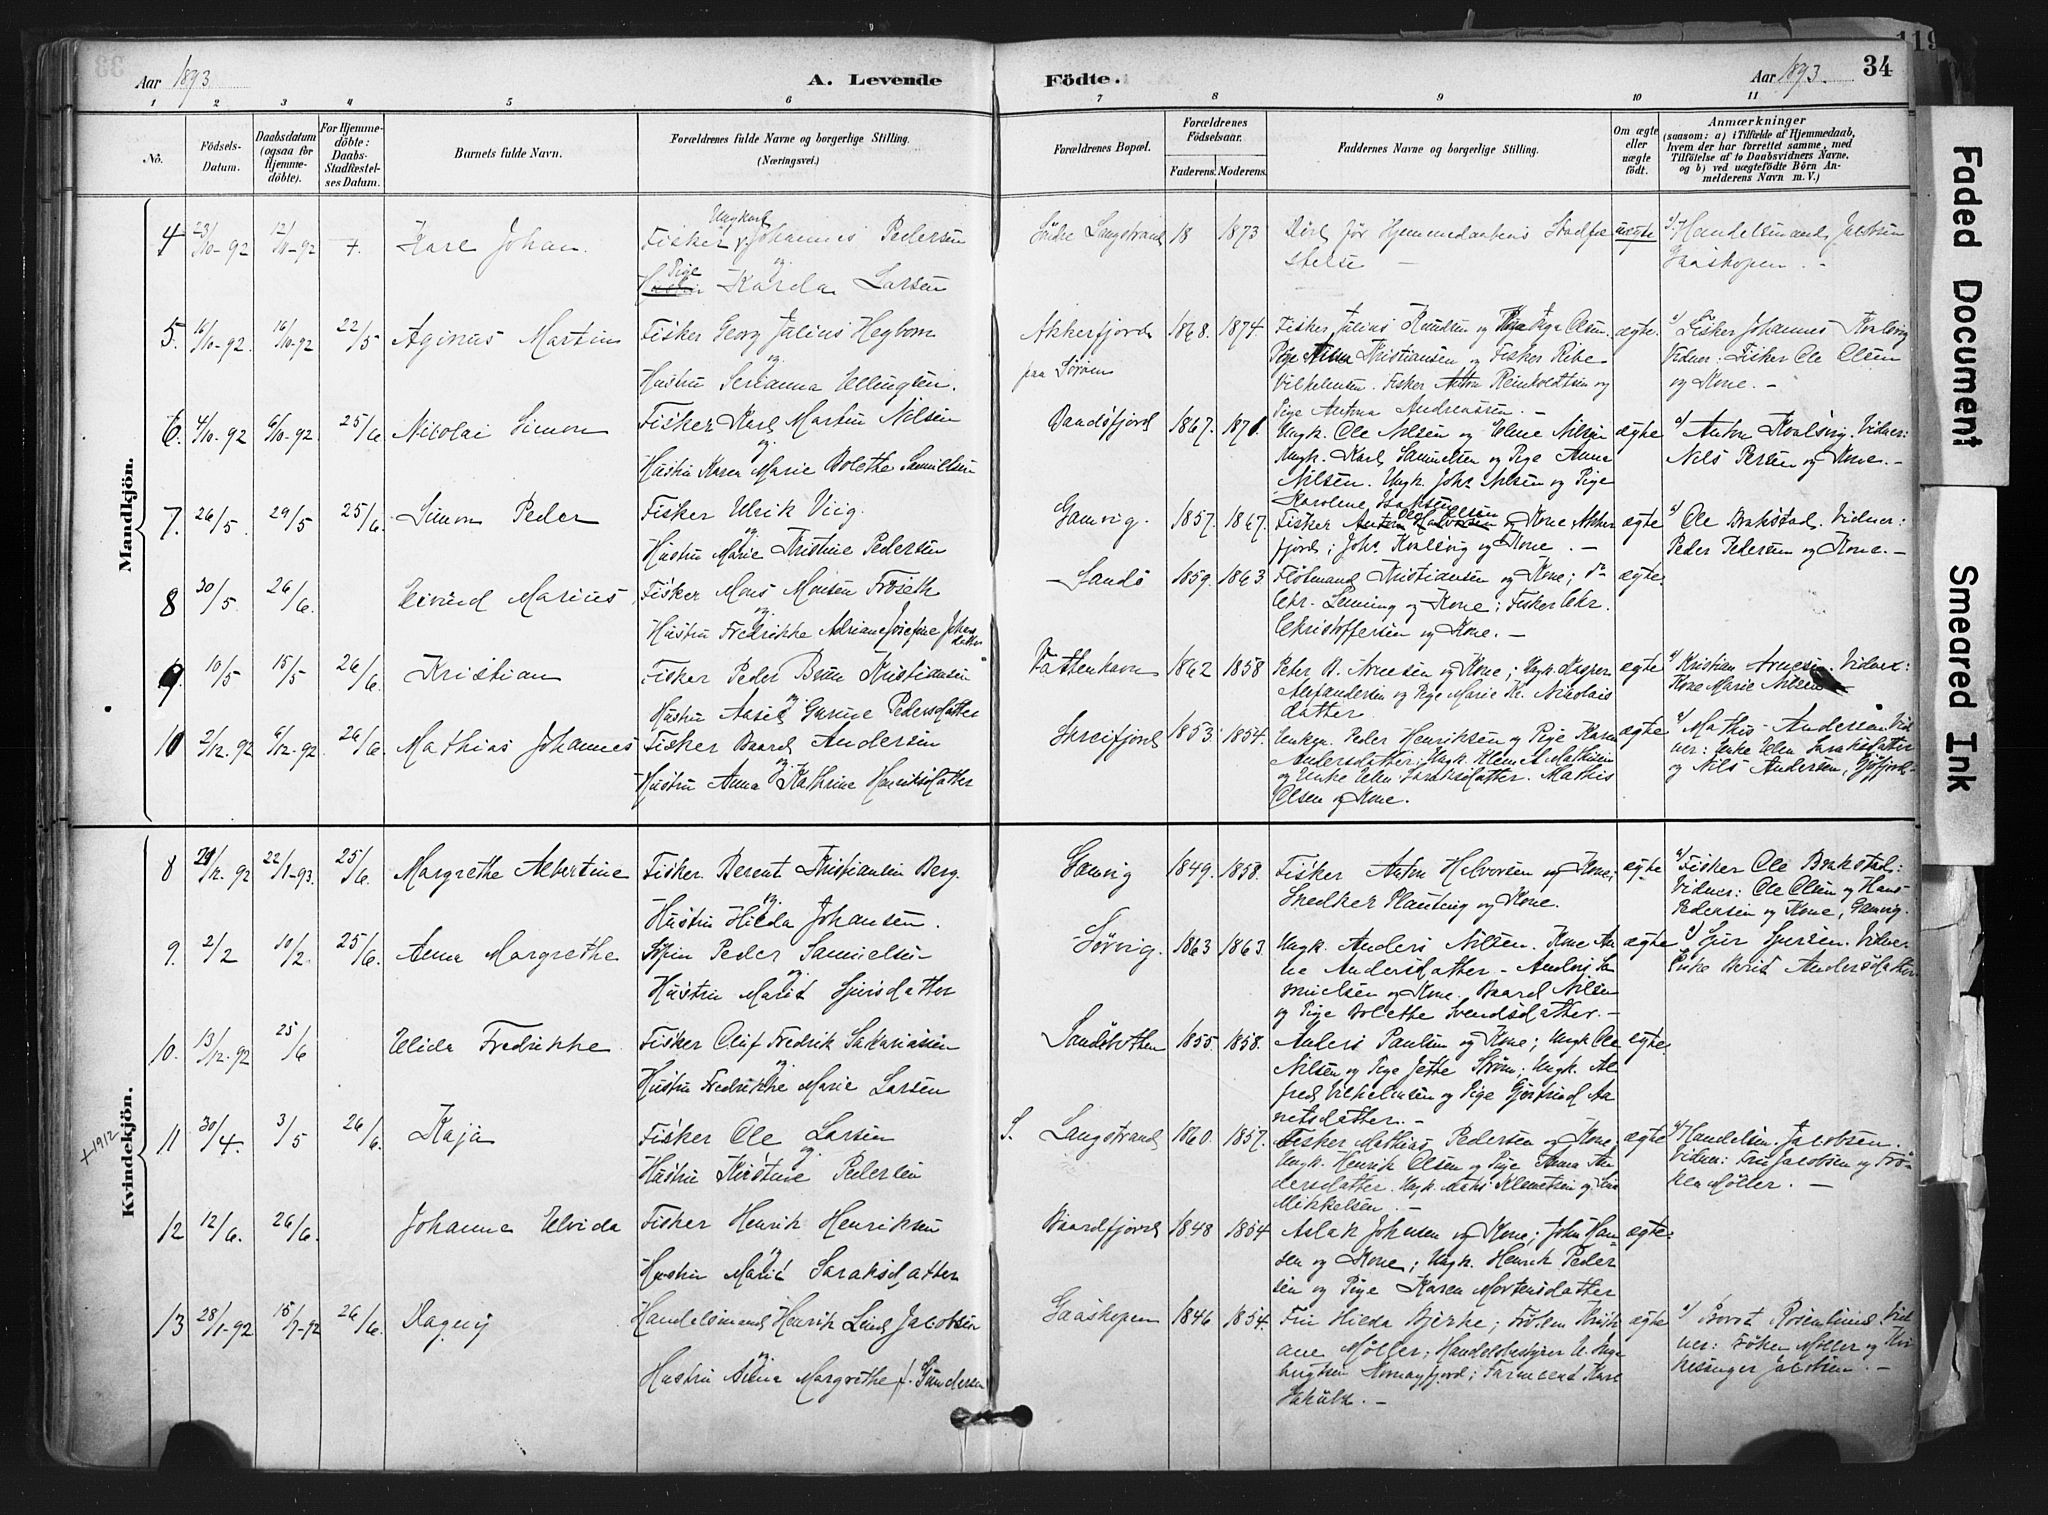 119
Aar 1893
A. Levende Födte.
Aar 1893.
34
1 2 3 4 5 6 7 8 9 10 11
No.
Födsels-Datum.
Daabsdatum (ogsaa for Hjemme-döbte).
For Hjemme-döbte: Daabs-Stadfæstel-ses Datum.
Barnets fulde Navn.
Forældrenes fulde Navne og borgerlige Stilling. (Næringsvei.)
Forældrenes Bopæl.
Forældrenes Födselsaar.
Faderens. Moderens.
Faddernes Navne og borgerlige Stilling.
Om ægte eller uægte födt.
Anmærkninger
(saasom: a) i Tilfælde af Hjemmedaab,
hvem der har forrettet samme, med
Tilföielse af to Daabsvidners Navne.
og b) ved uægtefödte Börn An-
melderens Navn m. V.)
Mandkjön.
4 23/10-92 12/11-92 +. Kare Johan.
Ungkarl
Fisker Johannes Pedersen
og
Pige Karda Larsen
Söndre Langstrand 18 1873
Död før Hjemmedaabens Stadfæ
stelse —
uægte
a/ Handelsmand Jacobsen
Gaaskopen. -
5. 16/10-92. 16/10-92 22/5 Aginus Martin
Fisker Georg Julius Hegborn
og
Hustru Serianna Ellingsen.
Akkerfjord
paa Sørøen
1868. 1874.
Fisker Julius Knudsen og Pige Inga Olsen.
Pige Kristiansen og Fisker Ribe
Vilhelmsen. Fisker Anton Reinholdtsen og
Pige Antona Andreassen. —
ægte.
a/ Fisker Johannes Kvalsvig
Vidner: Fisker Ole Olsen
og Kone. —
6. 4/10-92 6/10-92. 25/6 Nicolai Simon
Fisker Karl Martin Nilsen
og
Hustru Karen Marie Bolethe Samuelsen
Baadsfjord 1867. 1870.
Ungk. Ole Nilsen og Elene Nilsen
Ungk. Karl Samuelsen og Pige Anna
Nilsen. Ungk. Johs Nilsen og Pige
Karolene Isaksen
ægte
a/ Anton Kvalsvig. Vidner:
Nils Persen og Kone. —
7. 26/5. 29/5 25/6. Simon Peder
Fisker Ulrik Viig.
og
Hustru Marie Kristine Pedersen
Gamvig. 1857. 1867.
Fisker Ole Olsen og Kone Akker
fjord; Johs. Kvalsvig og Kone. —
ægte
a/ Ole Brakstad. Vidner:
Peder Pedersen og Kone. —
8 30/5. 26/6. Eivind Marius.
Fisker Mons Monsen Frøseth
og
Hustru Fredrikke Adriane Josefine Johns
datter
Sandø 1859. 1863
Fløtmand Kristiansen og Kone; do
Chr. Lenning og Kone; Fisker Chr.
Christoffersen og Kone. —
ægte
9. 10/5 15/5 26/6. Kristian
Fisker Peder Brun Kristiansen
og
Hustru Aasel Gurine Pedersdatter
Fattenhavn 1862 1858
Peter A. Arnesen og Kone; Ungk Kasper
Alexandersen og Pige Marie K. Nicolais
datter
ægte
a/ Kristian Arnesen. Vidner:
Kone Marie Nilsen
10 2/12.92 6/12-92 26/6. Mathias Johannes
Fisker Baard Andersen
og
Hustru Anna Kathrine Henriksdatter
Skreifjord 1853. 1854.
Enkem. Peder Henriksen og Pige Karen
Andersdatter; Ungk. Klem. A. Mathisen
og Enke Elen Saraksdatter. Mathis
Olsen og Kone.
ægte
a/ Mathis Andersen Vid
ner: Enke Elen Saraksdatter
og Nils Andersen, Gjøfjord-
Kvindekjön.
8 /12.92 22/1-93. 25/6. Margrethe Albertine
Fisker Berent Kristiansen Berg.
og
Hustru Hilda Johansen.
Gamvig 1849. 1858.
Fisker Anton Halvorsen og Kone;
Snedker Plauting og Kone.
ægte
a/ Fisker Ole Brakstad;
Vidner: Ole Olsen og Hans
Pedersen og Kone, Gamvig.
9. 2/2 10/2. 25/6. Anna Margrethe
Peder Samuelsen
og
Hustru Marit Sjursdatter
Sørvig. 1863 1863.
Ungk. Anders Nilsen. Kone An
ne Andersdatter - Anders Sa
muelsen og Kone. Baard Nilsen
og Pige Bolette Svendsdatter. —
ægte
a/ Sjur Sjursen. Vidner
Enke Berit Andersdatter
10. 13/12.92 25/6 Elida Fredrikke
Fisker Oluf Fredrik Sakariasen
og
Hustru Fredrikke Marie Larsen
Sandøbotten 1855. 1858.
Anders Paulsen og Kone; Ungk Ole
Nilsen og Pige Jette Strøm; Ungk. Al
fred Vilhelmsen og Pige Gjertrud Aa
netsdatter. —
ægte
+1912
11 30/4. 3/5 26/6. Kaja
Fisker Ole Larsen
og
Hustru Kirstine Pedersen
S. Langstrand 1860. 1857.
Fisker Mathias Pedersen og Kone;
Ungk. Henrik Olsen og Pige Anna An
dersdatter. Ungk. Mats Klemetsen og
Mikkelsen. —
ægte
a/ Handelsm. Jacobsen.
Vidner: Fru Jacobsen og Frø-
ken Møller. —
12 12/6. 26/6. Johanna Elvida
Fisker Henrik Henriksen
og
Hustru Marit Saraksdatter
Baardfjord 1848 1854
Aslak Johnsen og Kone; John Han-
sen og Kone; Ungk. Henrik Peder
sen og Pige Karen Mortensdatter
ægte.
13 28/1-92 15/7-92 26/6. Dagny
Handelsmand Henrik Lund Jacobsen
og
Hustru Alma Margrethe f. Gundersen
Gaaskopen 1846 1854.
Fru Hilda Bjerke; Frøken Kristi
ane Møller; Handelsbestyrer U. Inge
brigtsen Kornøyfjord; Farmacent Karl
ægte
a/ Berret Rosenlund Vid
ner: Frøken Møller og Kir
kesanger Jacobsen. —
Faded Document
Smeared Ink